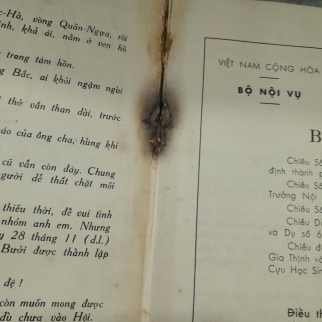 -Hà, vòng Quần-Ngựa, rồi
khả ái, nằm ở ven hồ
trong tâm hồn.
Bắc, ai khỏi ngậm ngùi
thở vắn than dài, trước
của ông cha, hùng khí
cũ vẫn còn đây. Chung
người dễ thắt chặt mối
thiếu thời, để vui tình
nhóm anh em. Nhưng
28 tháng 11 (d.l.)
Bưởi được thành lập
đệ !
còn muốn mong được
dù chưa vào Hội.
VIỆT NAM CỘNG HÒA
BỘ NỘI VỤ
B
Chiếu Số
định thành p
Chiếu Số
Trưởng Nội
Chiếu Số
Chiếu D
và Dụ số 6
Chiếu đ
Gia Thịnh v
Cựu Học Sin
Điều th